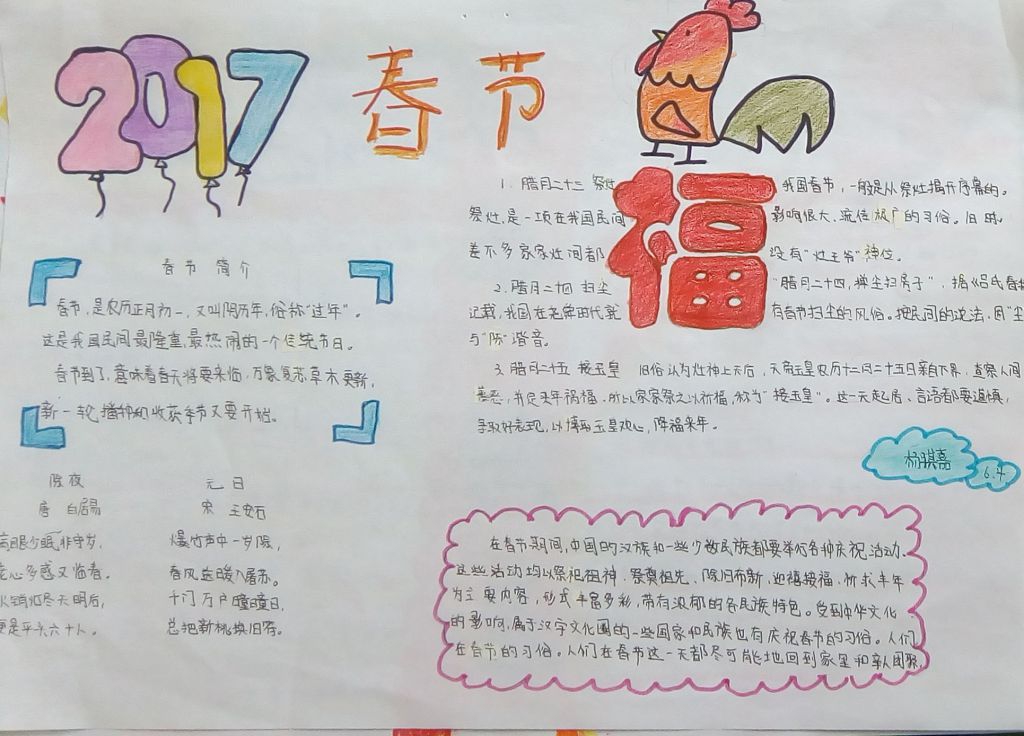 2017
春节
春节 简介
春节,是农历正月初一,又叫阴历年,俗称"过年"。
这是我国民间最隆重,最热闹的一个传统节日。
春节到了,意味着春天将要来临,万象复苏草木更新,
新一轮播种和收获季节又要开始。
除夜
唐 白居易
病眼少眠非守岁,
老心多感又临春。
火销灯尽天明后,
便是平头六十人。
元日
宋 王安石
爆竹声中一岁除,
春风送暖入屠苏。
千门万户曈曈日,
总把新桃换旧符。
福
1. 腊月二十三 祭灶 我国春节,一般是从祭灶揭开序幕的。
祭灶,是一项在我国民间 影响很大、流传极广的习俗。旧时,
差不多家家灶间都 没有"灶王爷"神位。
2. 腊月二十四 扫尘 "腊月二十四,掸尘扫房子",据《吕氏春秋
记载,我国在尧舜时代就 有春节扫尘的风俗。按民间的说法:因"尘
与"陈"谐音。
3. 腊月二十五 接玉皇 旧俗认为灶神上天后,天帝玉皇农历十二月二十五日亲自下界,查察人间
善恶,并定来年祸福,所以家家祭之以祈福,称为"接玉皇"。这一天起居、言语都要谨慎,
争取好表现,以博取玉皇欢心,降福来年。
杨骐嘉
6.4
在春节期间,中国的汉族和一些少数民族都要举行各种庆祝活动。
这些活动均以祭祀祖神、祭奠祖先、除旧布新、迎禧接福、祈求丰年
为主要内容,形式丰富多彩,带有浓郁的各民族特色。受到中华文化
的影响,属于汉字文化圈的一些国家和民族也有庆祝春节的习俗。人们
在春节的习俗。人们在春节这一天都尽可能地回到家里和亲人团聚,